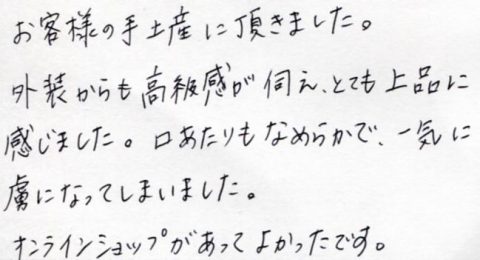 お客様の手土産に頂きました。
外装からも高級感が伺え、とても上品に
感じました。口あたりもなめらかで、一気に
虜になってしまいました。
オンラインショップがあってよかったです。